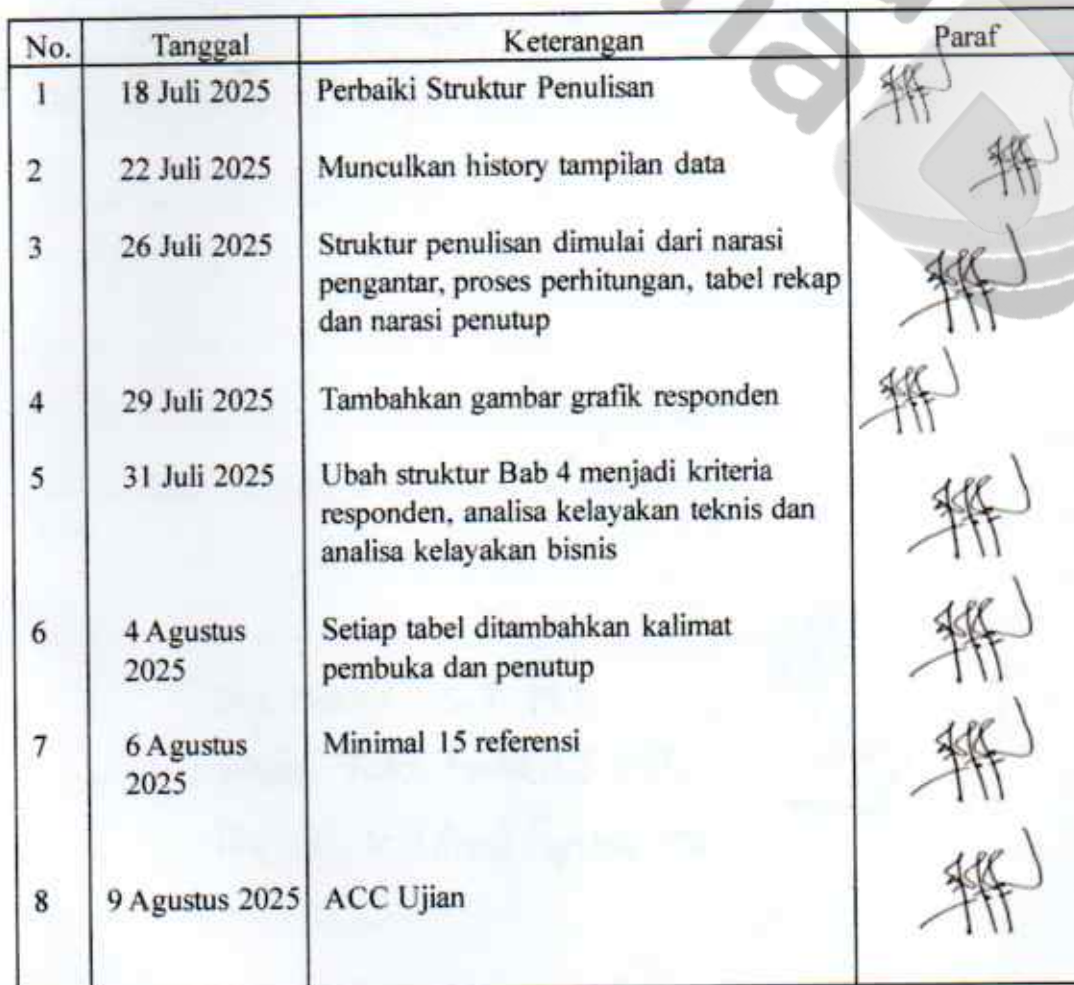 No. Tanggal Keterangan Paraf
1 18 Juli 2025 Perbaiki Struktur Penulisan
2 22 Juli 2025 Munculkan history tampilan data
3 26 Juli 2025 Struktur penulisan dimulai dari narasi
pengantar, proses perhitungan, tabel rekap
dan narasi penutup
4 29 Juli 2025 Tambahkan gambar grafik responden
5 31 Juli 2025 Ubah struktur Bab 4 menjadi kriteria
responden, analisa kelayakan teknis dan
analisa kelayakan bisnis
6 4 Agustus Setiap tabel ditambahkan kalimat
2025 pembuka dan penutup
7 6 Agustus Minimal 15 referensi
2025
8 9 Agustus 2025 ACC Ujian